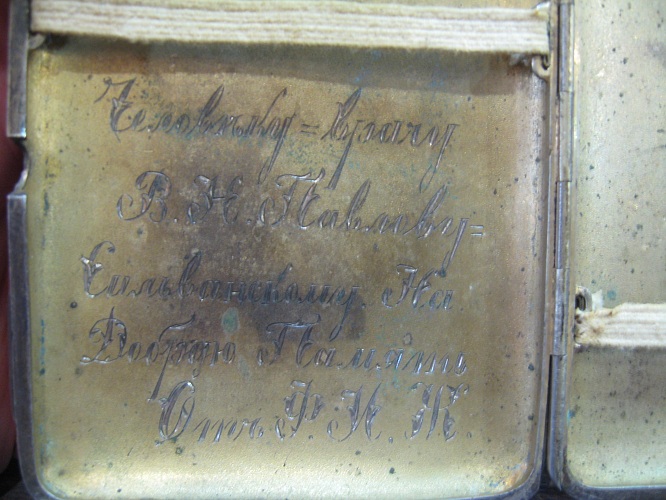 Человѣку = врачу
В. Н. Павлову =
Сильванскому. На
Добрую Память
Отъ Ф. К. Ж.